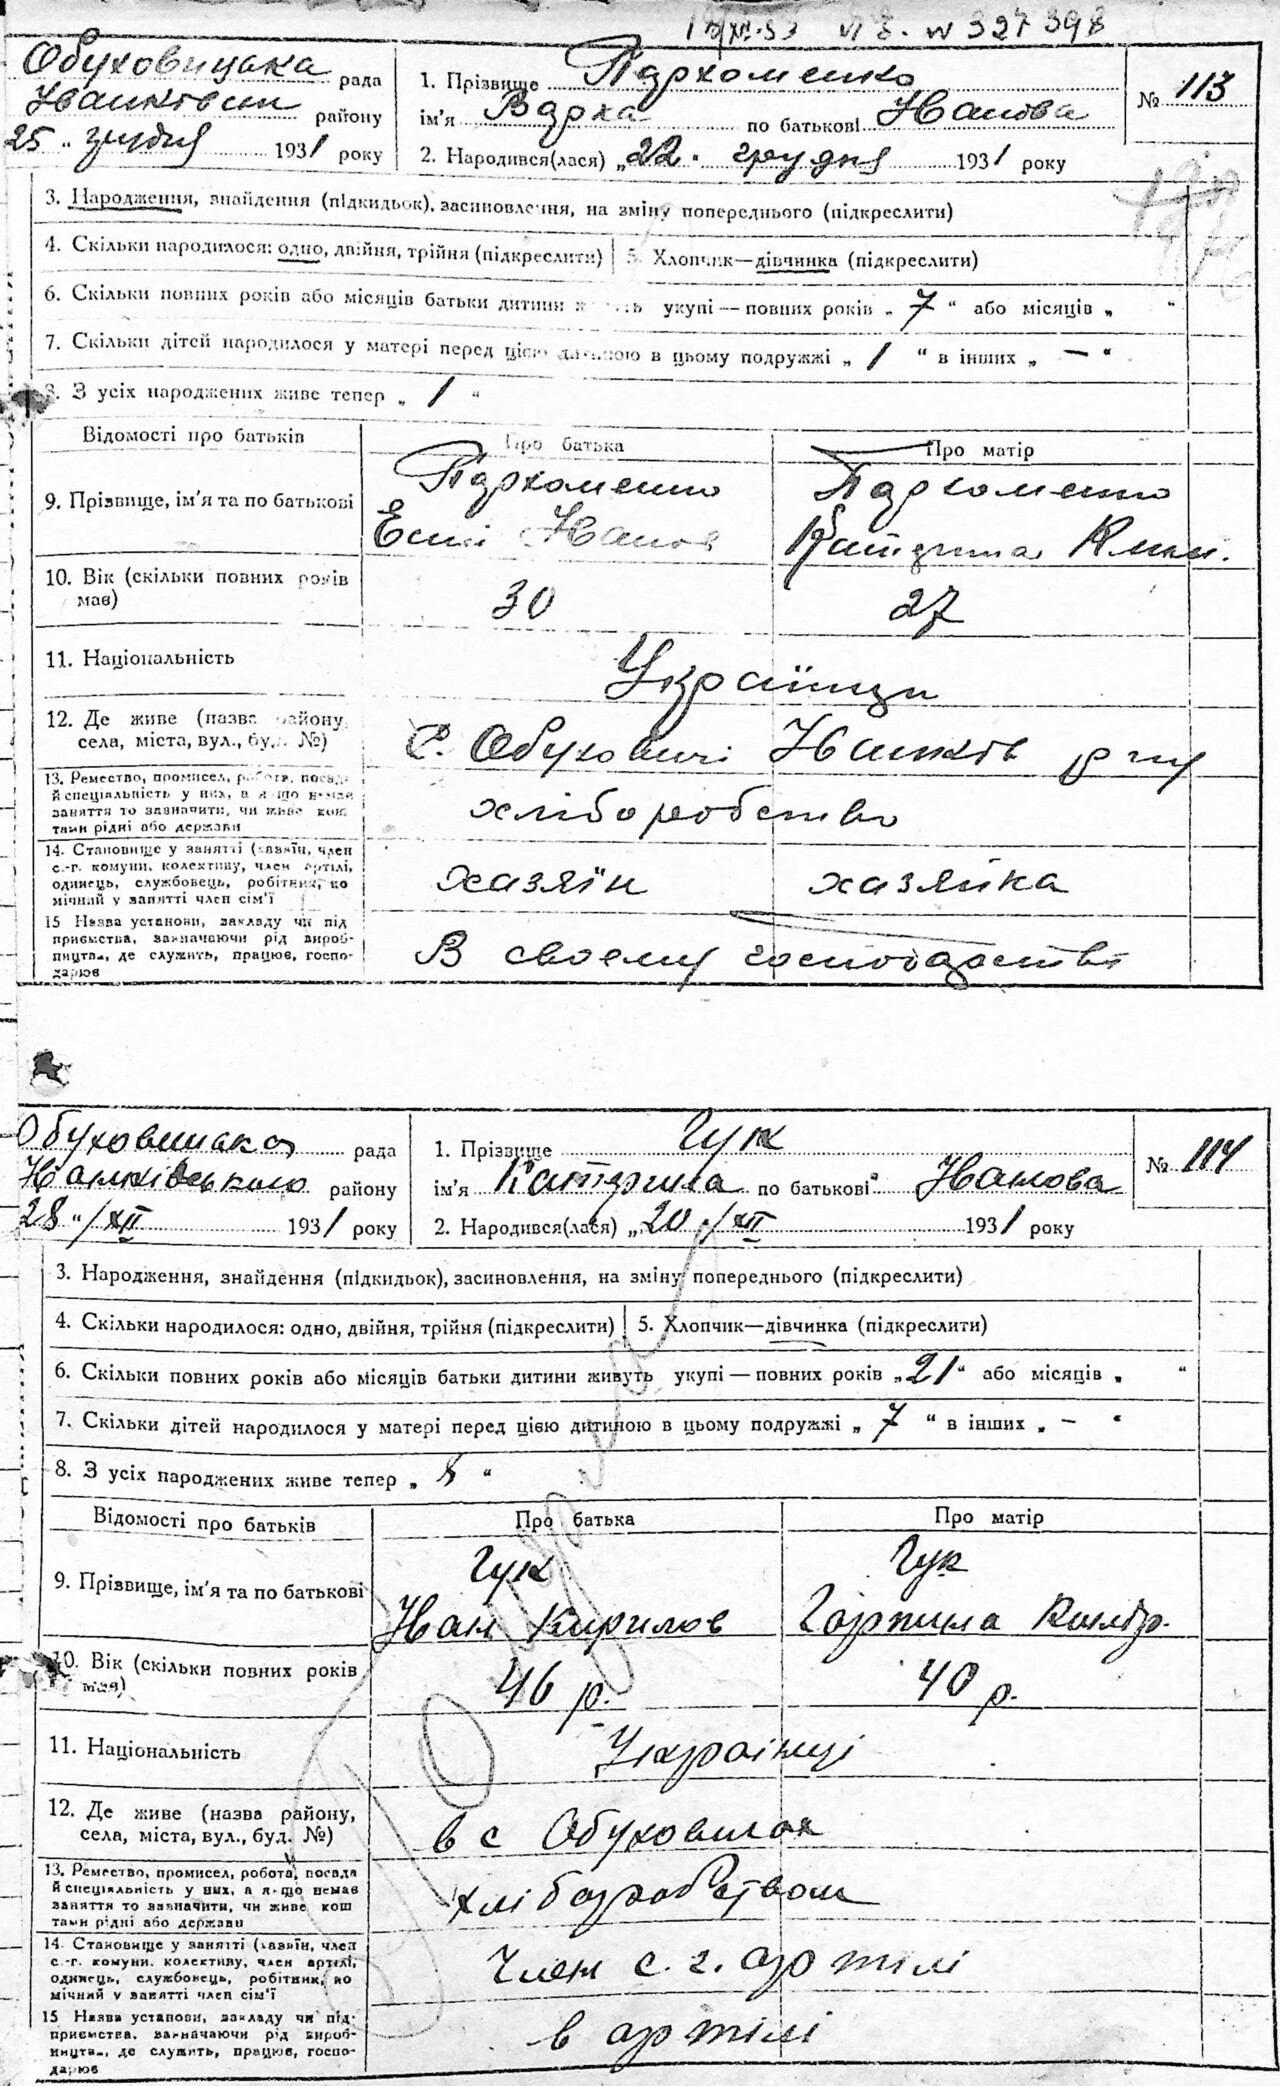 Обуховицька рада
Іванківськ району
25 " грудня 1931 року
1. Прізвище Пархоменко
ім'я Варка по батькові Іванова
2. Народився(лася) „ 22 " грудня 1931 року
№ 113
3. Народження, знайдення (підкидьок), засиновлення, на зміну попереднього (підкреслити)
4. Скільки народилося: одно, двійня, трійня (підкреслити) 5. Хлопчик—дівчинка (підкреслити)
6. Скільки повних років або місяців батьки дитини укупі — повних років „ 7 “ або місяців „ “
7. Скільки дітей народилося у матері перед цією дитиною в цьому подружжі „ 1 “ в інших „ — “
8. З усіх народжених живе тепер „ 1 “
Відомості про батьків Про батька Про матір
9. Прізвище, ім'я та по батькові
Пархоменко Пархоменко
Іванов Катерина
10. Вік (скільки повних років
має)
30 27
11. Національність Українці
12. Де живе (назва району,
села, міста, вул., буд. №)
С. Обуховичі Іванків р-ну
13. Ремество, промисел, робота, посада
й спеціяльність у них, а якщо немає
заняття то зазначити, чи живе кош
тами рідні або держави
хліборобство
14. Становище у занятті (хазяїн, член
с.-г. комуни, колективу, член артілі,
одинець, службовець, робітник, по
мічний у занятті член сім'ї
хазяїн хазяйка
15 Назва установи, закладу чи під
приємства, зазначаючи рід вироб-
ництва, де служить, працює, госпо-
дарює
В своєму господарстві
Обуховицька рада
Іванківського району
28 "/XII 1931 року
1. Прізвище Гук
ім'я Катерина по батькові Іванова
2. Народився(лася) „ 20 "/XII 1931 року
№ 114
3. Народження, знайдення (підкидьок), засиновлення, на зміну попереднього (підкреслити)
4. Скільки народилося: одно, двійня, трійня (підкреслити) 5. Хлопчик—дівчинка (підкреслити)
6. Скільки повних років або місяців батьки дитини живуть укупі — повних років „ 21 “ або місяців „ “
7. Скільки дітей народилося у матері перед цією дитиною в цьому подружжі „ 7 “ в інших „ — “
8. З усіх народжених живе тепер „ “
Відомості про батьків Про батька Про матір
9. Прізвище, ім'я та по батькові
Гук Гук
Іван Кирилов Горпина
10. Вік (скільки повних років
має)
46 р. 40 р.
11. Національність Українці
12. Де живе (назва району,
села, міста, вул., буд. №)
в с Обуховичах
13. Ремество, промисел, робота, посада
й спеціяльність у них, а якщо немає
заняття то зазначити, чи живе кош
тами рідні або держави
хліборобством
14. Становище у занятті (хазяїн, член
с.-г. комуни, колективу, член артілі,
одинець, службовець, робітник, по
мічний у занятті член сім'ї
Член с. г. артілі
15 Назва установи, закладу чи під-
приємства, зазначаючи рід вироб-
ництва, де служить, працює, госпо-
дарює
в артілі